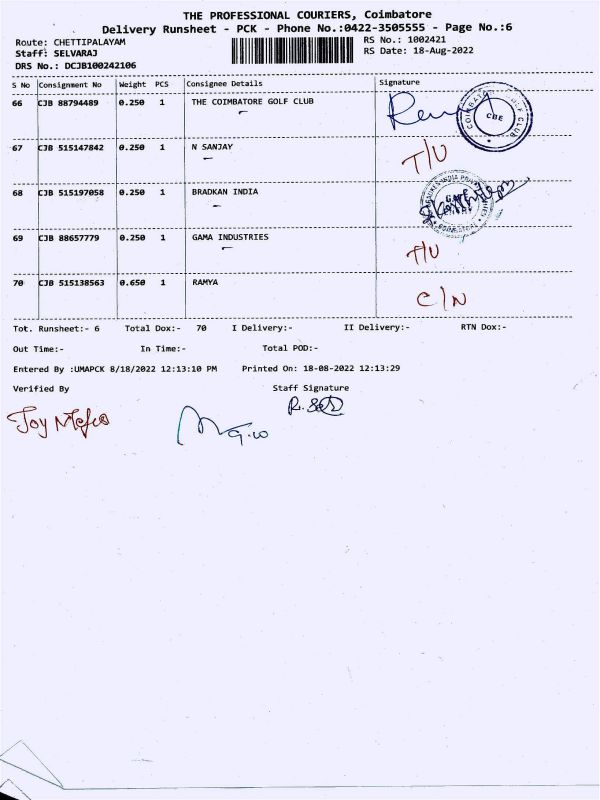 THE PROFESSIONAL COURIERS, Coimbatore
Delivery Runsheet - PCK - Phone No.:0422-3505555 - Page No.:6
Route: CHETTIPALAYAM
RS No.: 1002421
Staff: SELVARAJ
RS Date: 18-Aug-2022
DRS No.: DCJB100242106
S No Consignment No Weight PCS Consignee Details Signature
66 CJB 88794489 0.250 1 THE COIMBATORE GOLF CLUB
CBE
67 CJB 515147842 0.250 1 N SANJAY T/U
68 CJB 515197058 0.250 1 BRADKAN INDIA
69 CJB 88657779 0.250 1 GAMA INDUSTRIES T/U
70 CJB 515138563 0.650 1 RAMYA C/N
Tot. Runsheet:- 6 Total Dox:- 70 I Delivery:- II Delivery:- RTN Dox:-
Out Time:- In Time:- Total POD:-
Entered By :UMAPCK 8/18/2022 12:13:10 PM Printed On: 18-08-2022 12:13:29
Verified By Staff Signature